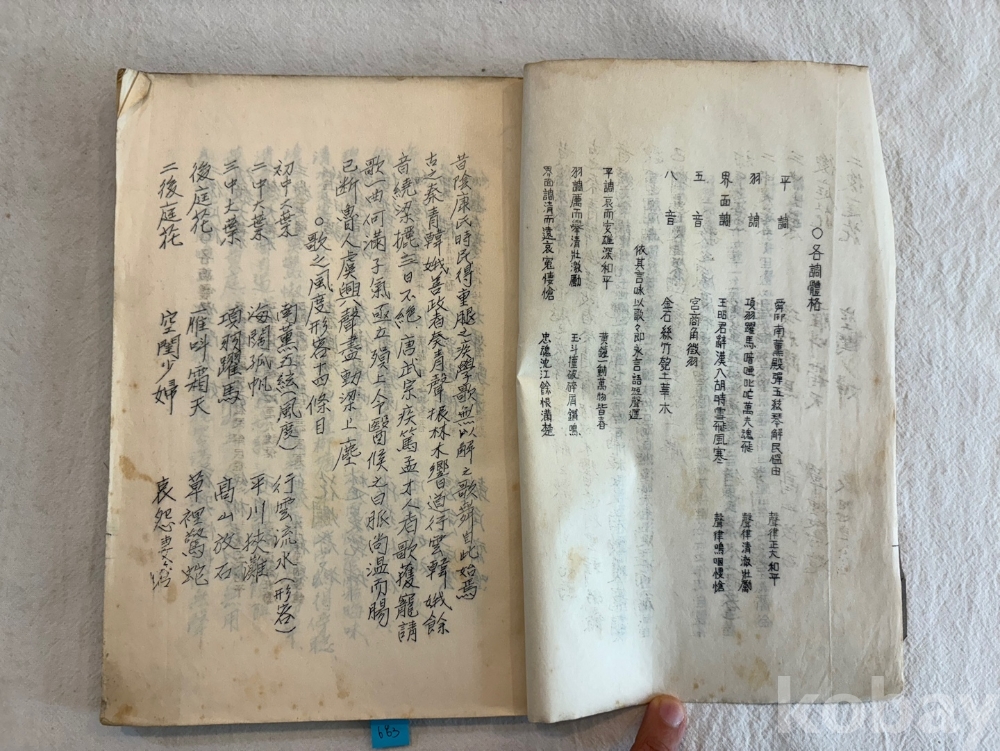 ○各調體格
平調 舜御南薰殿彈五絃琴解民慍由 聲律正大和平
羽調 項羽躍馬喑啞叱咤萬夫魂飛 聲律清澈壯勵
界面調 王昭君辭漢入胡時雪飛風寒 聲律嗚咽悽愴
五音 宮商角徵羽
八音 金石絲竹匏土革木
依其言咏以歌々即永言語延聲遲
平調哀而安雄深和平 黃鍾一動萬物皆春
羽調厲而擧清壯激勵 玉斗撞破碎屑鏘鳴
界面調清而遠哀寃悽愴 忠魂沈江餘恨滿楚
昔陰康氏時民得重腿之疾學歌無以解之歌舞自此始焉
古之秦青韓娥善政者矣青聲振林木響遏行雲韓娥餘
音繞梁欐三日不絶唐武宗疾篤孟才人者歌獲寵請
歌一曲何滿子氣亟立殞上令醫候之曰脈尚溫而腸
已斷 魯人虞興入聲盡動梁上塵
○歌之風度形容十四條目
初中大葉 南薰五絃(風度) 行雲流水(形容)
二中大葉 海闊孤帆 平川挾灘
三中大葉 項羽躍馬 高山放石
後庭花 雁叫霜天 草裡驚蛇
二後庭花 空閨少婦 哀怨
663
kobay